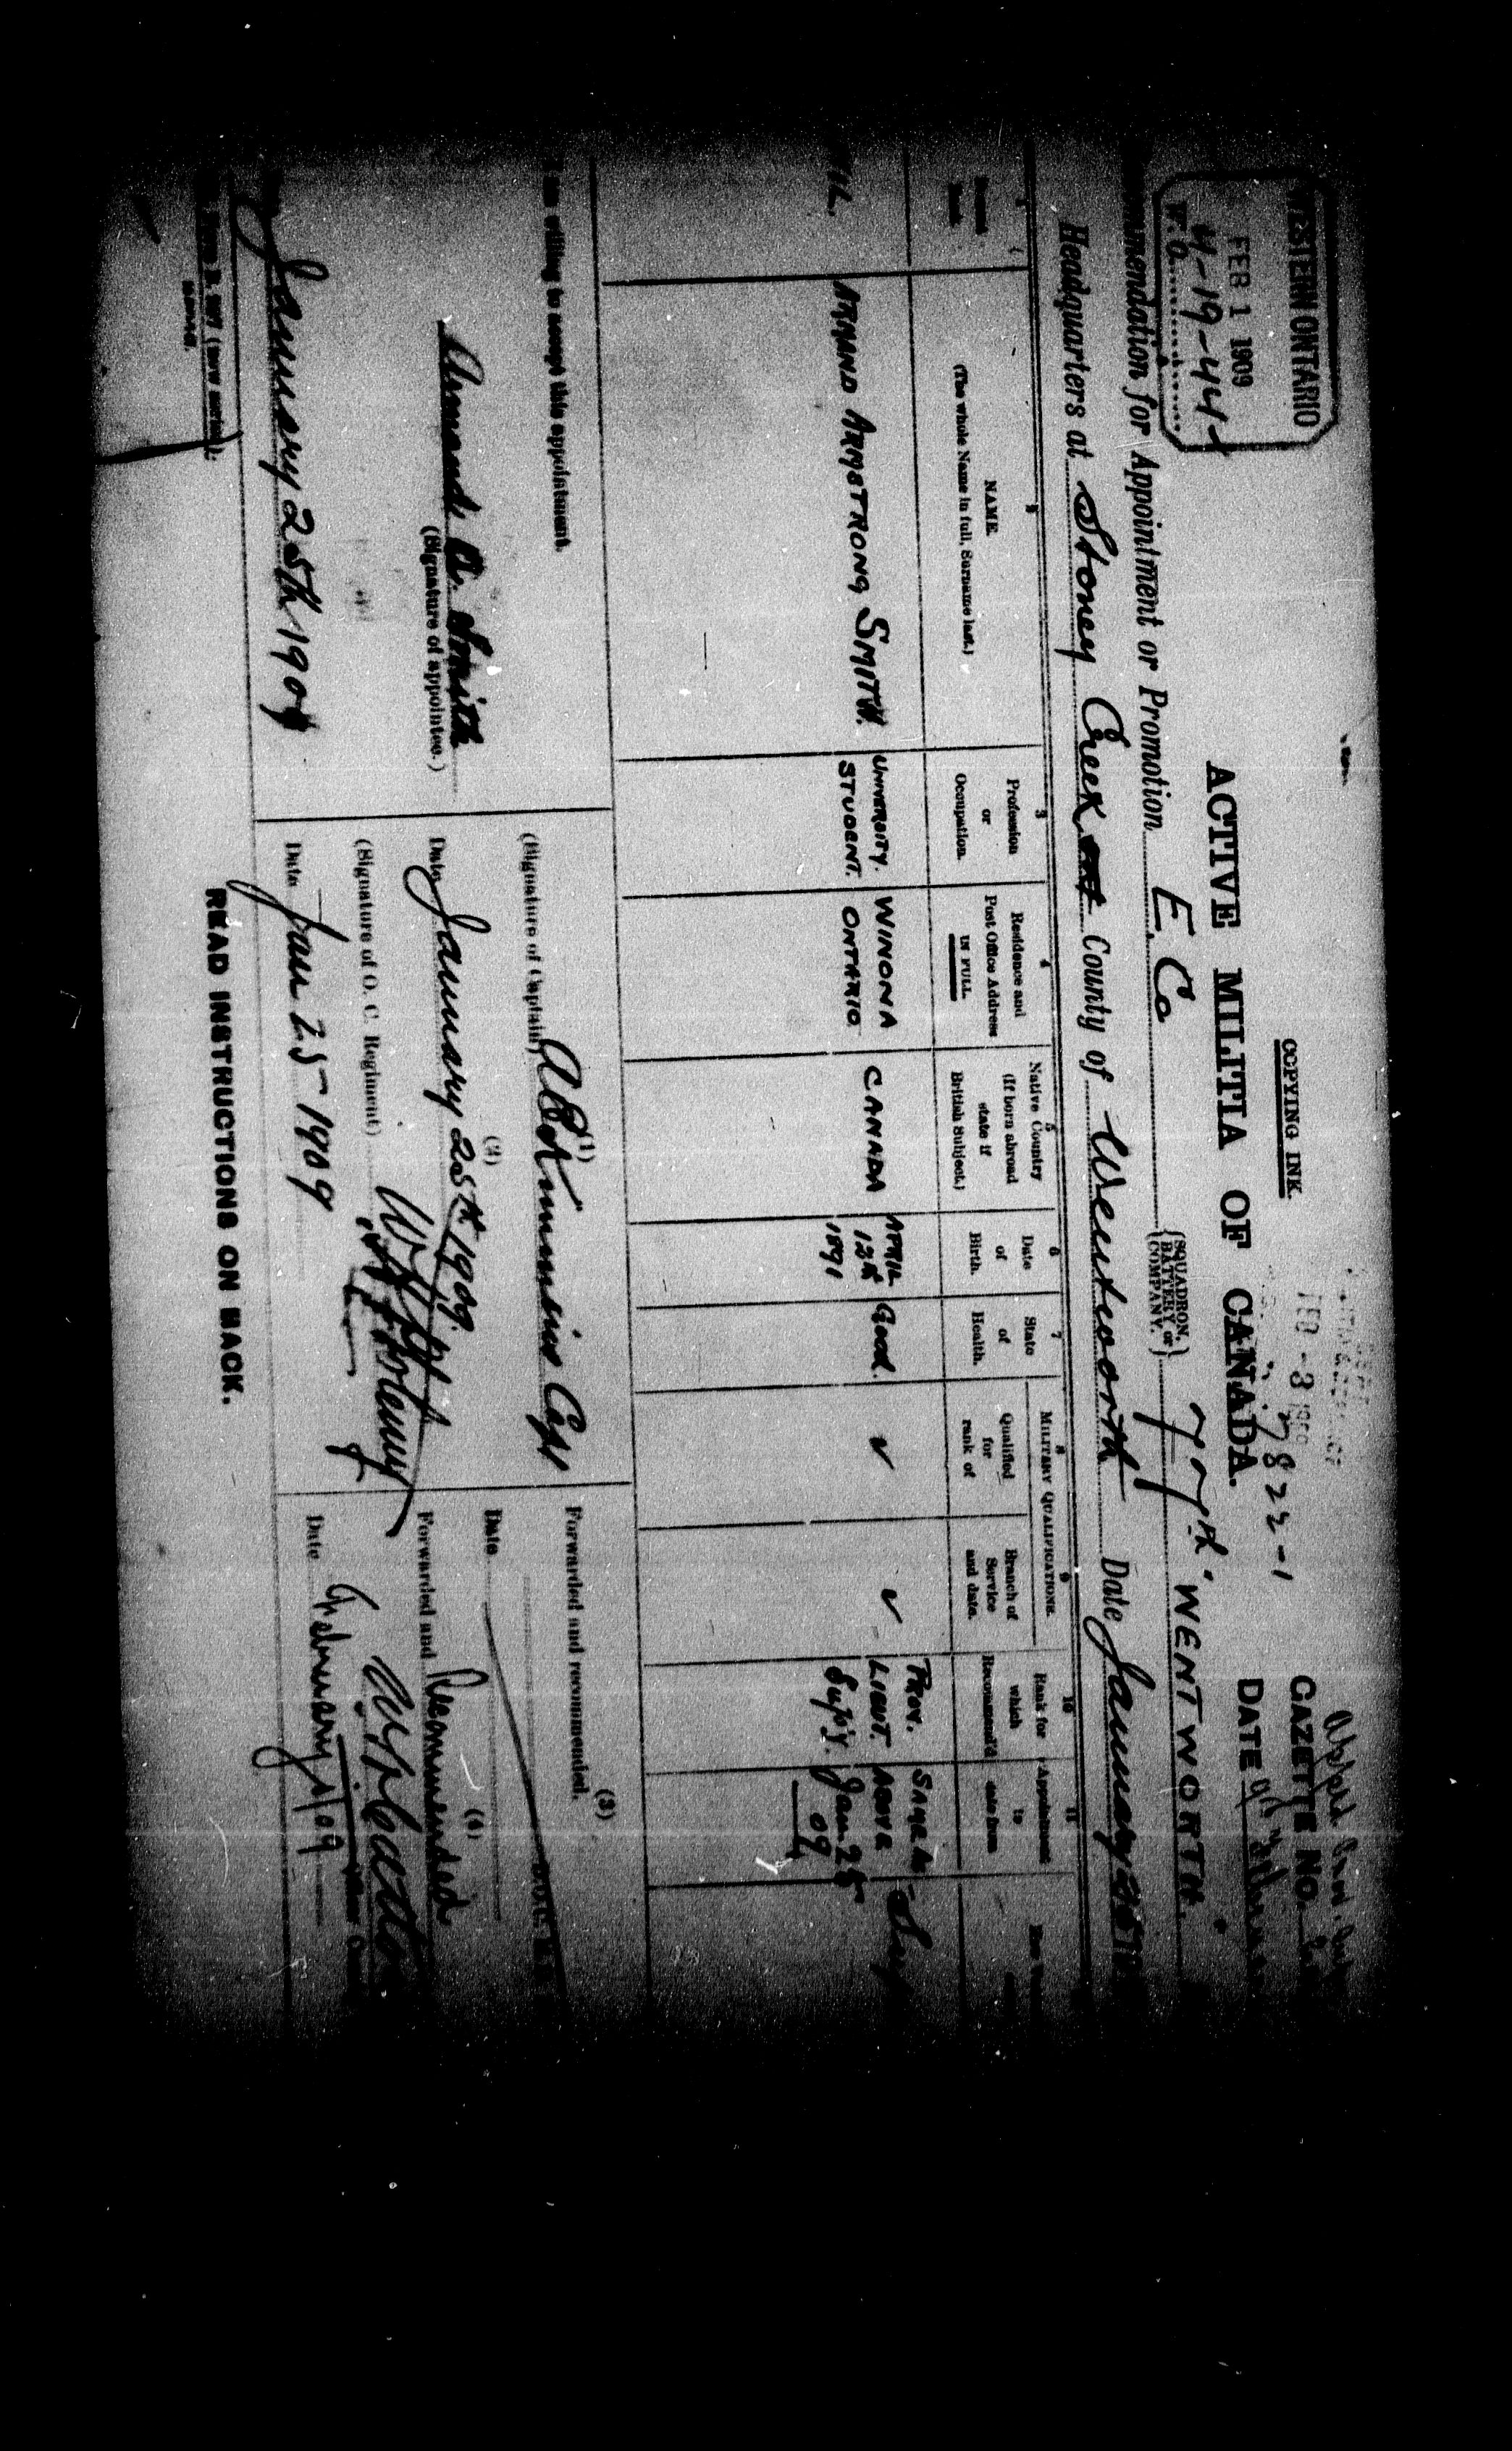 WESTERN ONTARIO
FEB 1 1909
4-19-44
COPYING INK.
FEB - 3 1909
7822-1
GAZETTE NO.
DATE
ACTIVE MILITIA OF CANADA.
for Appointment or Promotion E. Co {SQUADRON. BATTERY or COMPANY.} 77th "WENTWORTH."
Headquarters at Stoney Creek County of Wentworth Date January
2 3 4 5 6 7 8 9 10 11
MILITARY QUALIFICATIONS.
NAME
(The whole Name in full, Surname last.)
Profession
or
Occupation.
Residence and
Post Office Address
IN FULL.
Native Country
(If born abroad
state if
British Subject.)
Date
of
Birth.
State
of
Health.
Qualified
for
rank of
Branch of
Service
and date.
Rank for
which
Recommend'd
Appointment
to
date from
NIL.
ARMAND ARMSTRONG SMITH.
UNIVERSITY.
STUDENT.
WINONA
ONTARIO.
CANADA
APRIL
12th
1891
Good.
PROV.
LIEUT.
Sup'y.
SAME AS
ABOVE
Jan 25
09
I am willing to accept this appointment.
Armand A. Smith
(Signature of appointee.)
January 25th 1909
(1)
(Signature of Captain)
Date January 25th 1909.
(2)
(Signature of O. C. Regiment)
Date Jan 25 1909
(3)
Forwarded and recommended.
Date
(4)
Forwarded and Recommended
Date February 1/09
READ INSTRUCTIONS ON BACK.